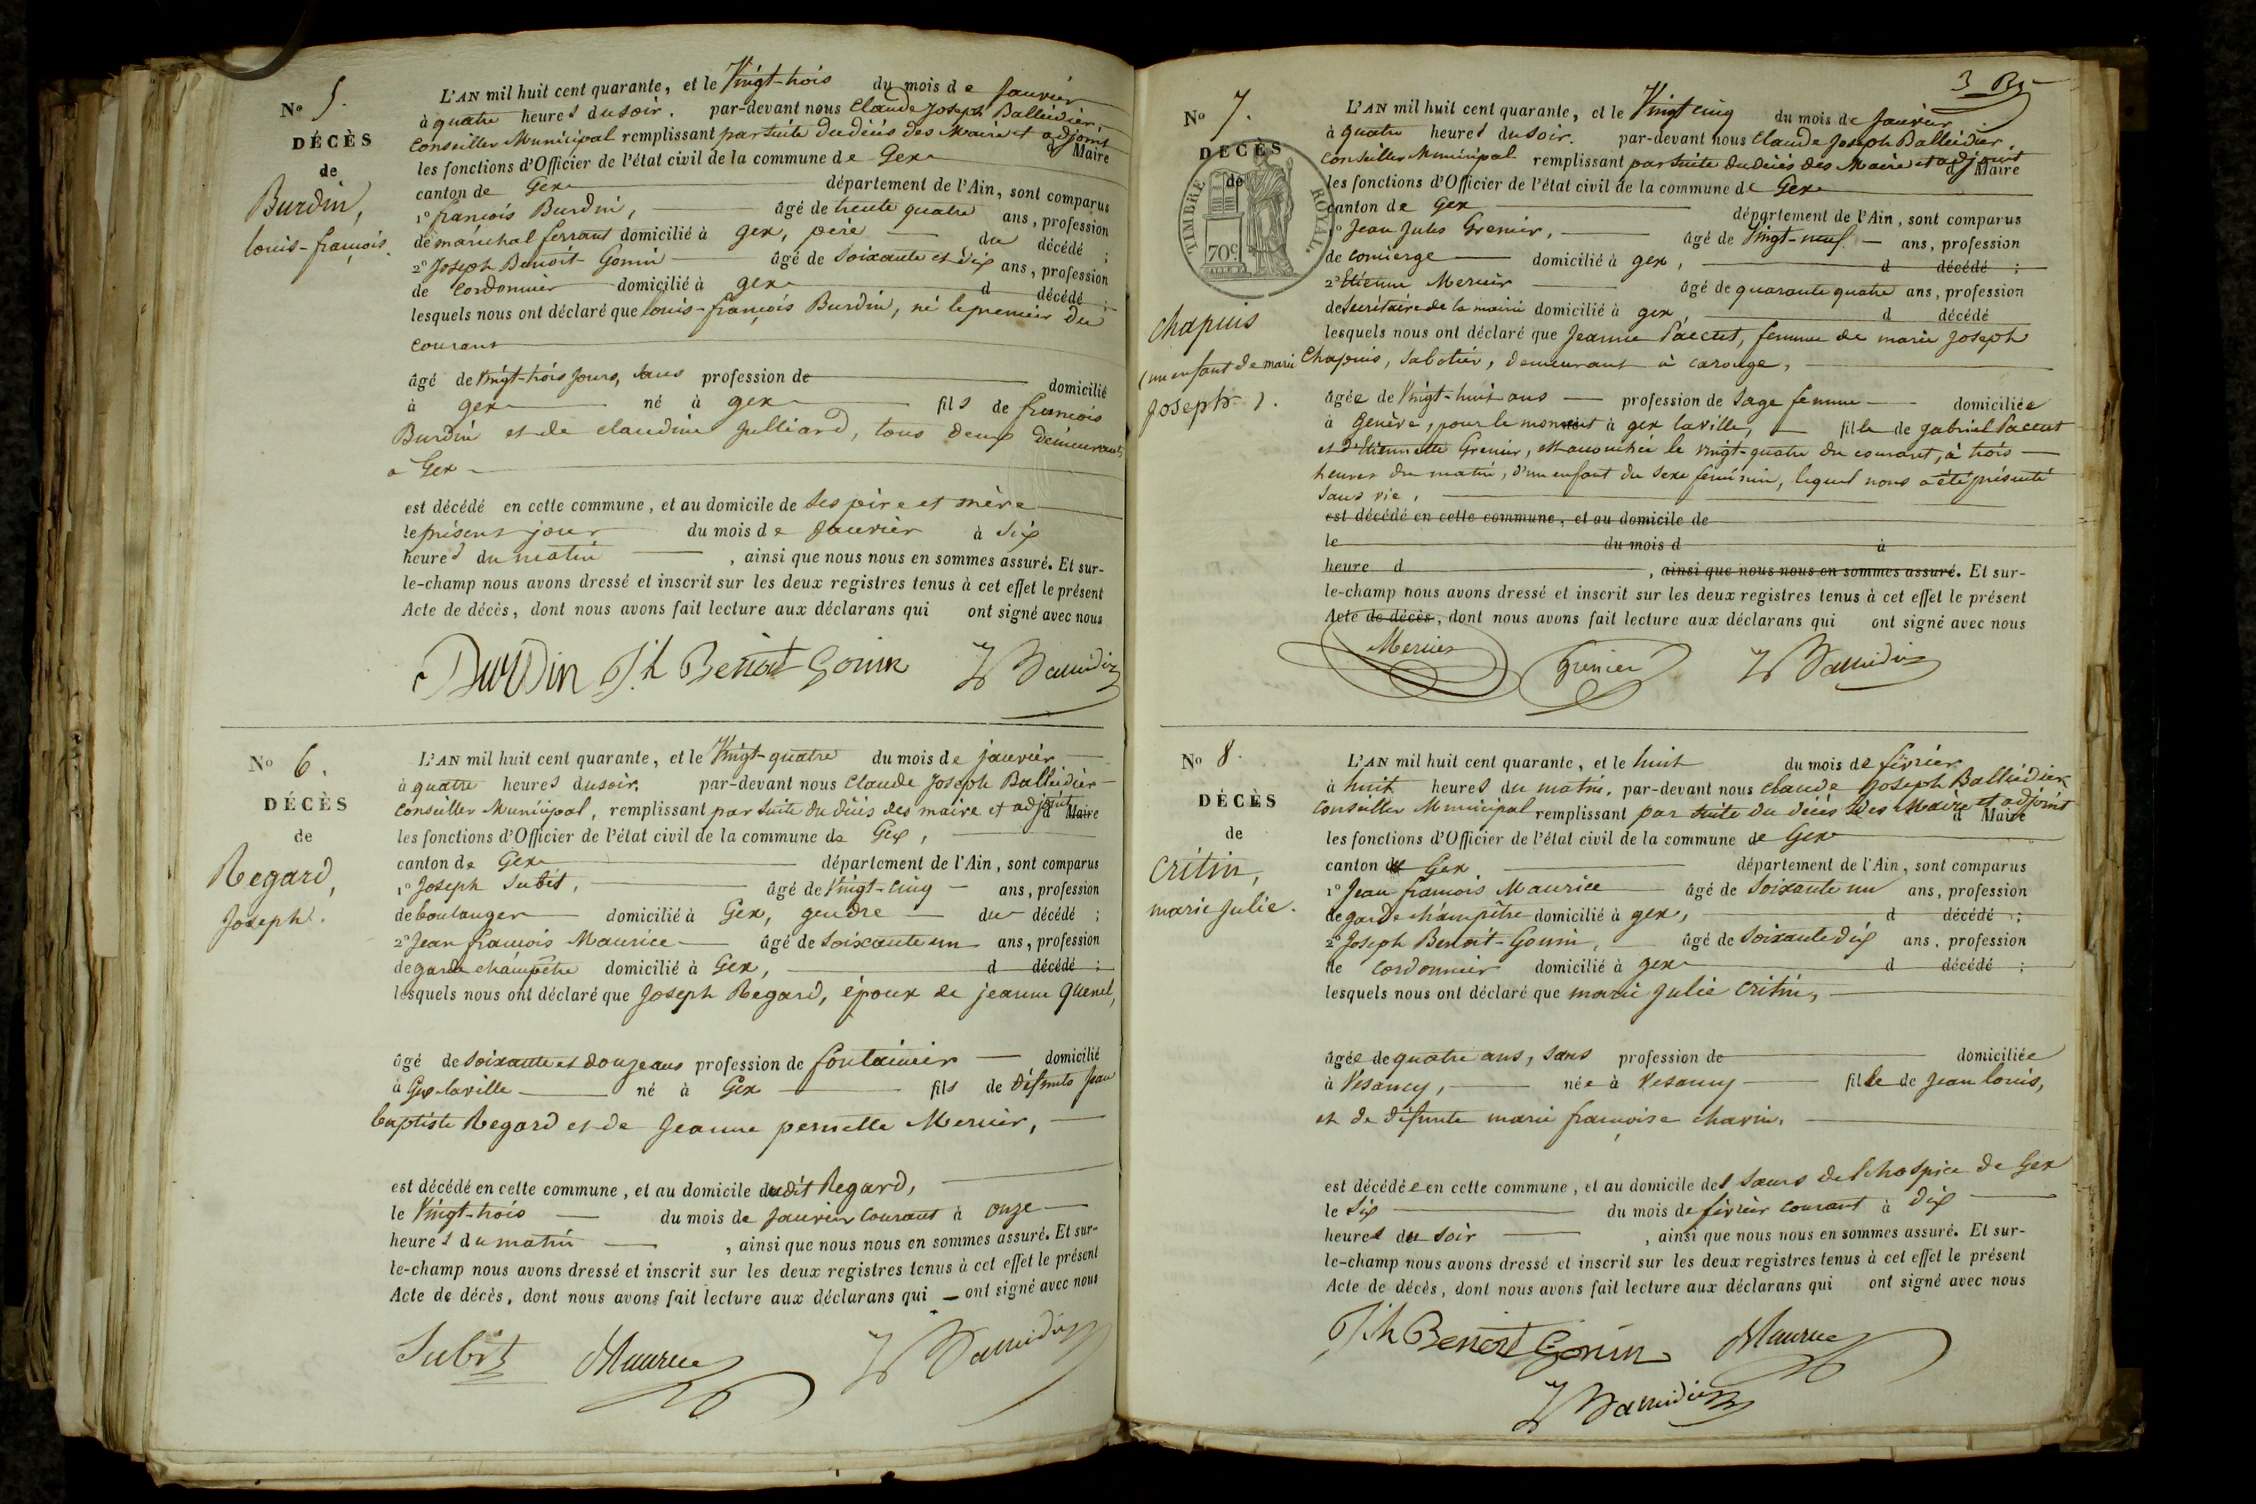 N° 5.
DÉCÈS
de
Burdin,
louis-françois.
L'AN mil huit cent quarante, et le Vingt-trois du mois de Janvier
à quatre heures du soir. par-devant nous Claude Joseph Balleidier,
Conseiller Municipal remplissant par suite du décès des Maire et adjoint d Maire
les fonctions d'Officier de l'état civil de la commune de Gex
canton de Gex département de l'Ain, sont comparus
1° françois Burdin, âgé de trente quatre ans, profession
de maréchal ferrant domicilié à gex, père du décédé ;
2° Joseph Benoit-Gonin âgé de soixante et dix ans, profession
de cordonnier domicilié à gex d décédé ;
lesquels nous ont déclaré que louis-françois Burdin, né le premier du
courant
âgé de Vingt-trois jours, sans profession de domicilié
à gex né à gex fils de françois
Burdin et de claudine Julliard, tous deux demeurants
a Gex
est décédé en cette commune, et au domicile de ses père et mère
le présent jour du mois de Janvier à six
heures du matin , ainsi que nous nous en sommes assuré. Et sur-
le-champ nous avons dressé et inscrit sur les deux registres tenus à cet effet le présent
Acte de décès, dont nous avons fait lecture aux déclarans qui ont signé avec nous
Burdin J.h Benoit Gonin Balleidier
N° 6.
DÉCÈS
de
Regard,
Joseph.
L'AN mil huit cent quarante, et le Vingt-quatre du mois de janvier
à quatre heures du soir. par-devant nous Claude Joseph Balleidier
Conseiller Municipal, remplissant par suite du décès des maire et adjoint d Maire
les fonctions d'Officier de l'état civil de la commune de Gex,
canton de Gex département de l'Ain, sont comparus
1° Joseph Subit, âgé de Vingt-cinq ans, profession
de boulanger domicilié à Gex, gendre du décédé ;
2° Jean françois Maurice âgé de soixante un ans, profession
de garde champêtre domicilié à Gex, d décédé ;
lesquels nous ont déclaré que Joseph Regard, époux de jeanne Quenel,
âgé de soixante et douze ans profession de fontainier domicilié
à Gex la ville né à Gex fils de défunts Jean
baptiste Regard et de Jeanne pernette Mercier,
est décédé en cette commune, et au domicile dudit Regard,
le Vingt-trois du mois de janvier courant à onze
heures du matin , ainsi que nous nous en sommes assuré. Et sur-
le-champ nous avons dressé et inscrit sur les deux registres tenus à cet effet le présent
Acte de décès, dont nous avons fait lecture aux déclarans qui ont signé avec nous
Subit Maurice Balleidier
3
N° 7.
DÉCÈS
de
TIMBRE ROYAL.
70c
chapuis
(un enfant de marie
Joseph).
L'AN mil huit cent quarante, et le Vingt cinq du mois de Janvier
à quatre heures du soir. par-devant nous Claude Joseph Balleidier,
Conseiller Municipal remplissant par suite du décès des Maire et adjoint d Maire
les fonctions d'Officier de l'état civil de la commune de Gex
canton de Gex département de l'Ain, sont comparus
1° Jean Jules Grenier, âgé de Vingt-neuf ans, profession
de concierge domicilié à gex, d décédé ;
2° Etienne Mercier âgé de quarante quatre ans, profession
de secrétaire de la mairie domicilié à gex, d décédé
lesquels nous ont déclaré que Jeanne Paccut, femme de marie Joseph
Chapuis, sabotier, demeurant à carouge,
âgée de Vingt-huit ans profession de sage femme domiciliée
à Genève, pour le moment à gex la ville, fille de gabriel Paccut
et d'Etiennette Grenier, est accouchée le vingt-quatre du courant, à trois
heures du matin, d'un enfant du sexe féminin, lequel nous a été présenté
sans vie,
est décédé en cette commune, et au domicile de
le du mois d à
heure d , ainsi que nous nous en sommes assuré. Et sur-
le-champ nous avons dressé et inscrit sur les deux registres tenus à cet effet le présent
Acte de décès, dont nous avons fait lecture aux déclarans qui ont signé avec nous
Mercier Grenier Balleidier
N° 8.
DÉCÈS
de
Critin,
marie Julie.
L'AN mil huit cent quarante, et le huit du mois de février
à huit heures du matin, par-devant nous claude Joseph Balleidier
Conseiller Municipal remplissant par suite du décès des Maire et adjoint d Maire
les fonctions d'Officier de l'état civil de la commune de Gex
canton de Gex département de l'Ain, sont comparus
1° Jean françois Maurice âgé de soixante un ans, profession
de garde champêtre domicilié à gex, d décédé ;
2° Joseph Benoit-Gonin, âgé de soixante dix ans, profession
de cordonnier domicilié à gex d décédé ;
lesquels nous ont déclaré que marie Julie Critin,
âgée de quatre ans, sans profession de domiciliée
à Vesancy, née à Vesancy fille de Jean louis,
et de défunte marie françoise chavin.
est décédée en cette commune, et au domicile des sœurs de l'hospice de Gex
le six du mois de février courant à dix
heures du soir , ainsi que nous nous en sommes assuré. Et sur-
le-champ nous avons dressé et inscrit sur les deux registres tenus à cet effet le présent
Acte de décès, dont nous avons fait lecture aux déclarans qui ont signé avec nous
J.h Benoit Gonin Maurice
Balleidier